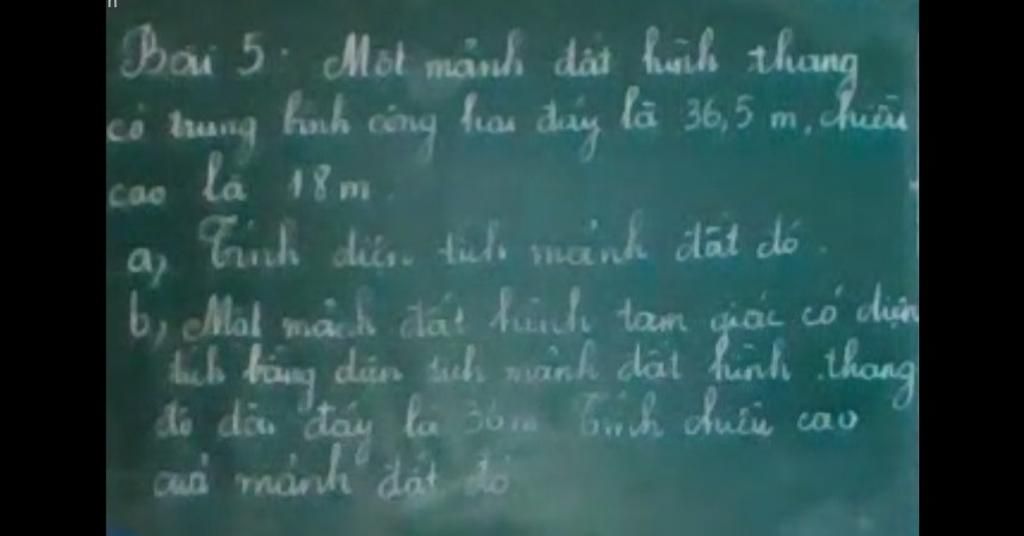 n
Bài 5: Một mảnh đất hình thang
có trung bình cộng hai đáy là 36,5 m, chiều
cao là 18m.
a, Tính diện tích mảnh đất đó.
b, Một mảnh đất hình tam giác có diện
tích bằng diện tích mảnh đất hình thang
đó dài đáy là 36m Tính chiều cao
của mảnh đất đó